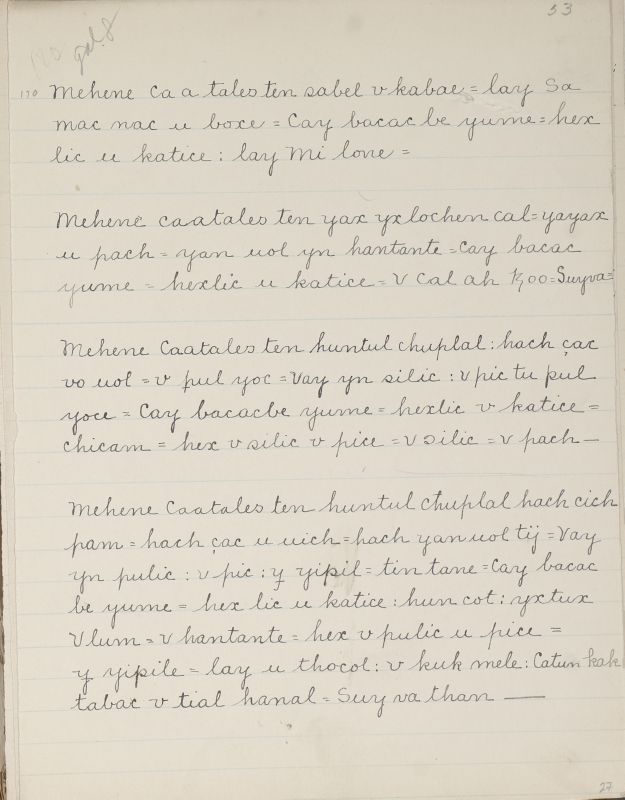 53
gal. 8
170 Mehene ca a tales ten sabel v kabae = lay Sa
mac nac u boxe = Cay bacac be yume = hex
lic u katice : lay Mi lone =
Mehene caatales ten yax yxlochen cal = yayax
u pach = yan uol yn hantante = Cay bacac
yume = hexlic u katice = V Cal ah Ɔoo = Suyva =
Mehene Caatales ten huntul chuplal : hach çac
vo uol = v pul yoc = Vay yn silic : v pic tu pul
yoce = Cay bacacbe yume = hexlic v katice =
chicam = hex v silic v pice = v silic = v pach —
Mehene Caatales ten huntul chuplal hach cich
pam = hach çac u uich = hach yan uol tij = Vay
yn pulic : v pic : y yipil = tin tane = Cay bacac
be yume = hex lic u katice : hun cot : yxtux
Vlum = v hantante = hex v pulic u pice =
y yipile = lay u thocol : v kuk mele : Catun kak
tabac v tial hanal = Suy va than —
27